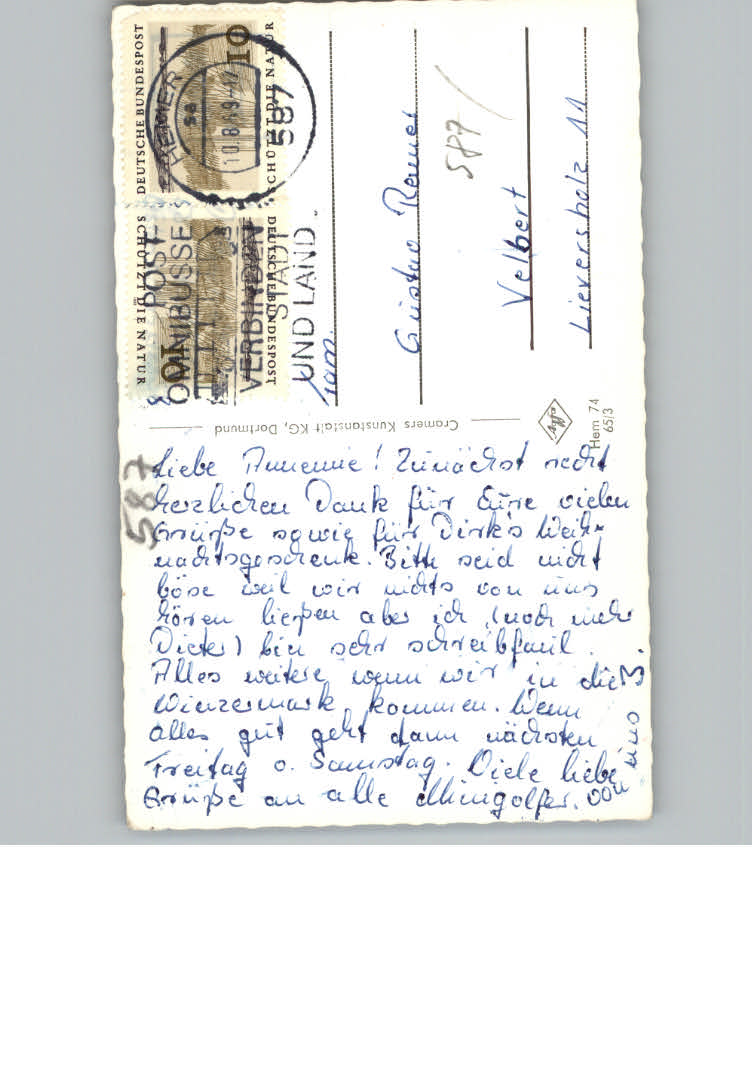 DEUTSCHE BUNDESPOST
SCHÜTZT DIE NATUR
10
DEUTSCHE BUNDESPOST
SCHÜTZT DIE NATUR
10
HEMER
58
10.8.69-17
587
POST
OMNIBUSSE
VERBINDEN
STADT
UND LAND
Fam.
Gustav
Velbert
Lieversholz 11
587
587
Cramers Kunstanstalt KG, Dortmund
Hem 74
65/3
Liebe Annemie! Zunächst recht
herzlichen Dank für Eure vielen
Grüße sowie für Dirk's Weih-
nachtsgeschenk. Bitte seid nicht
böse weil wir nichts von uns
hören ließen aber ich (noch mehr
Dieter) bin sehr schreibfaul.
Alles weitere wenn wir in die
kommen. Wenn
alles gut geht dann nächsten
Freitag o. Samstag. Viele liebe
Grüße an alle Minigolfer. von
uns 3